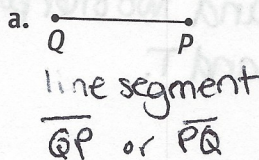 a.
Q P
line segment
QP or PQ